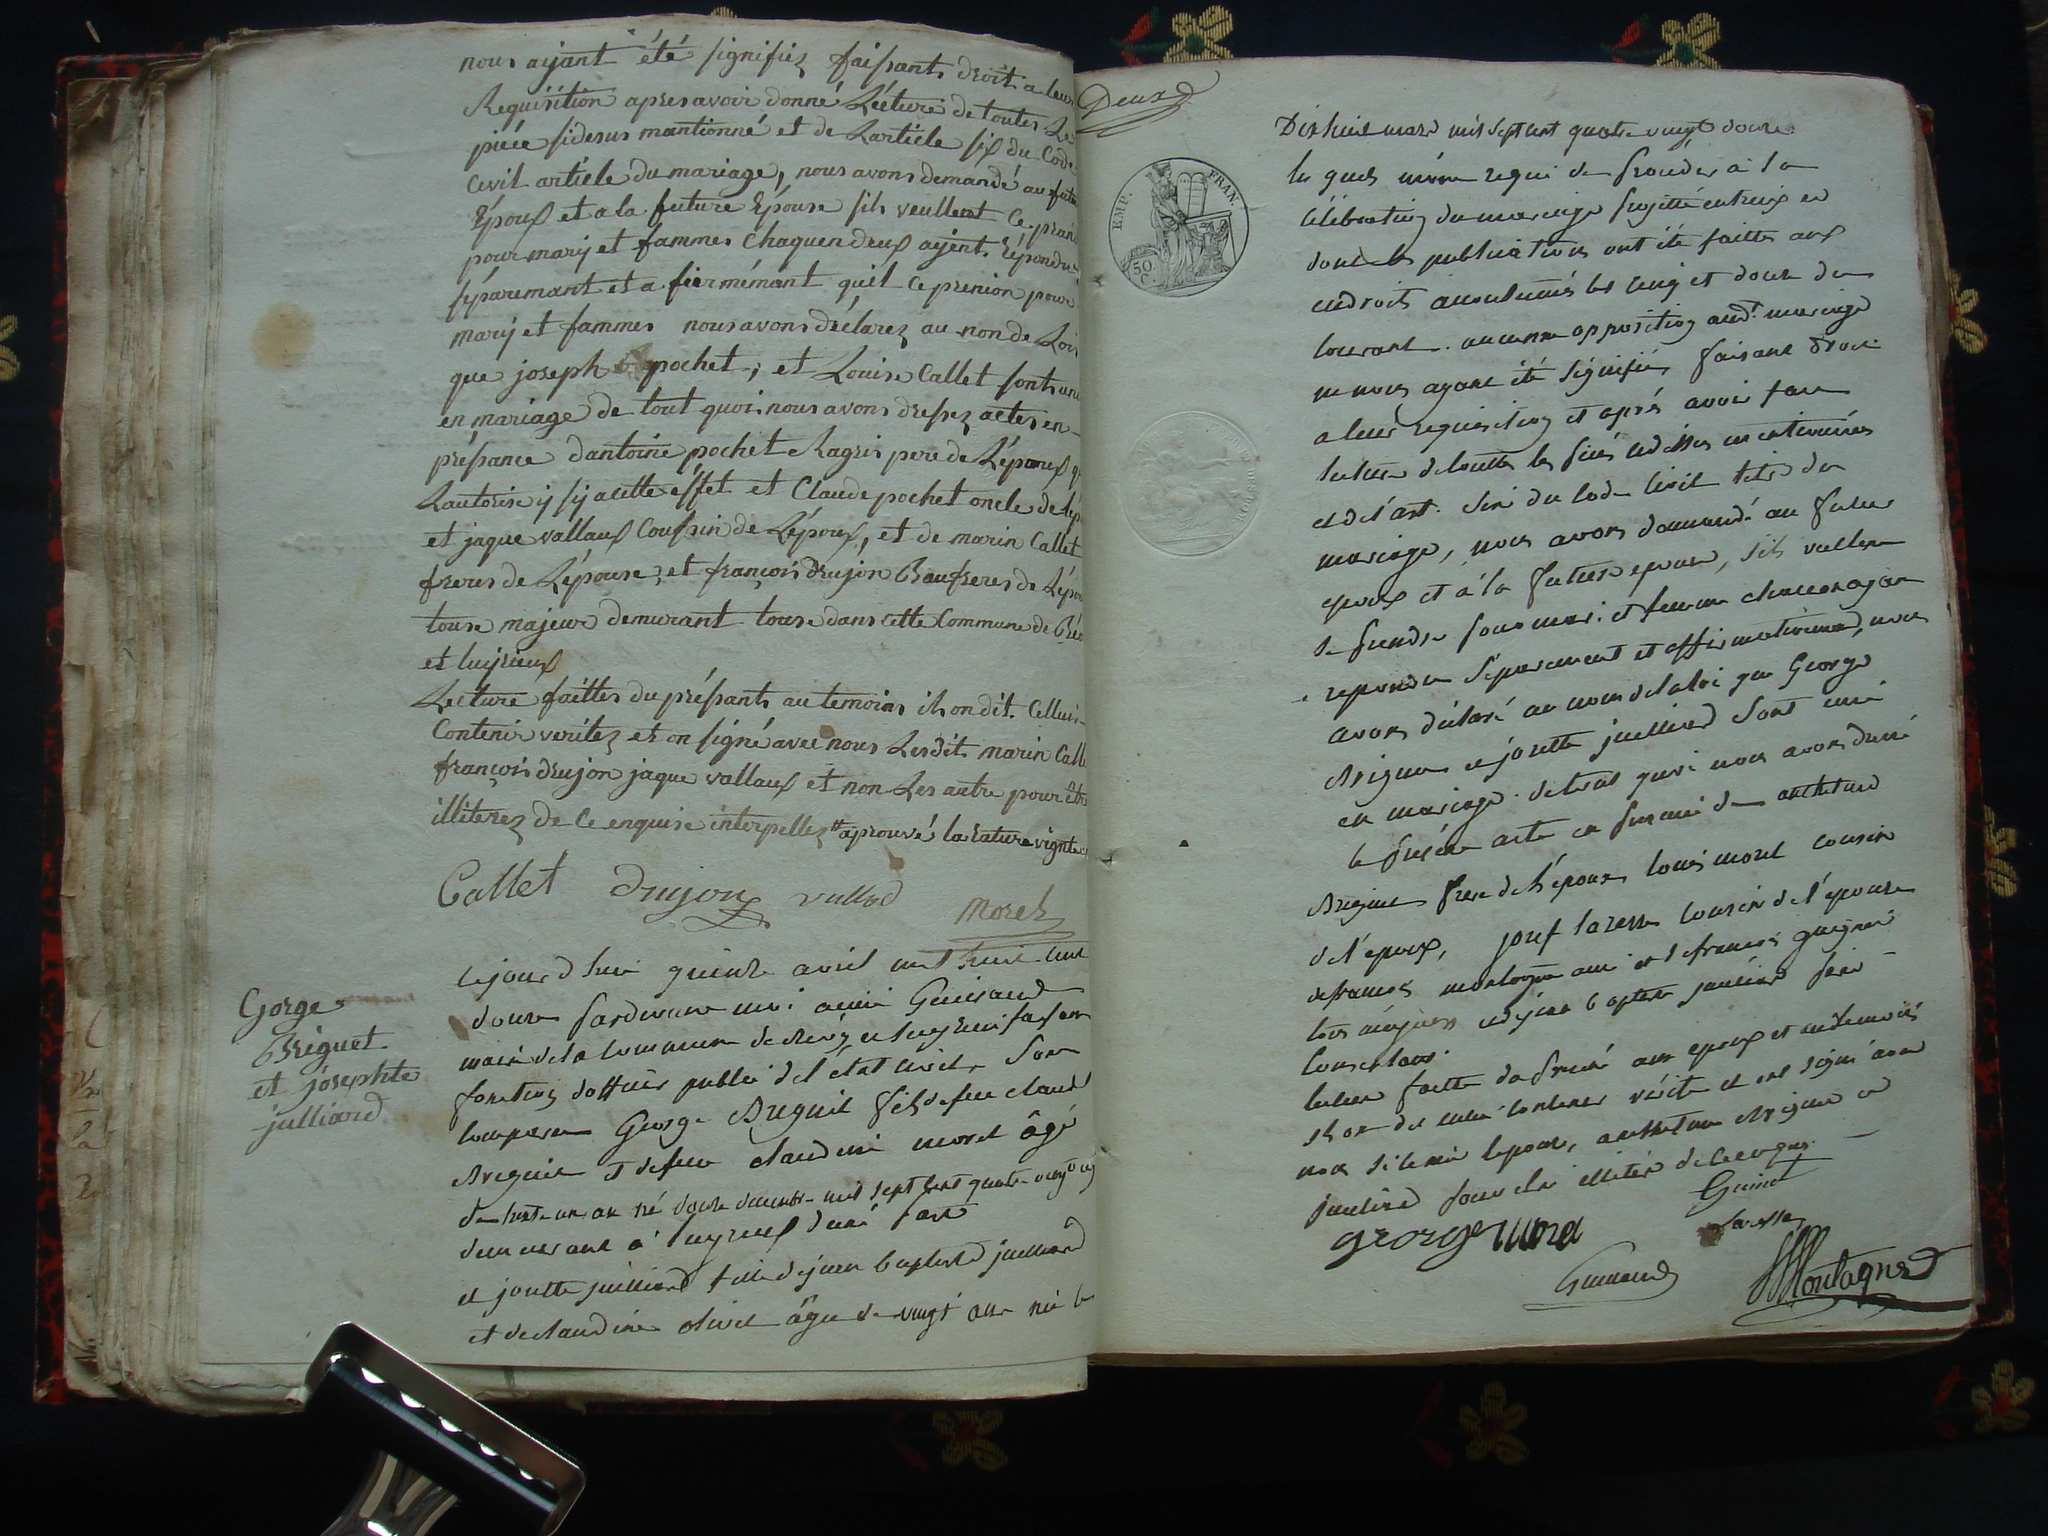 nous ayant été signifiez faisants droit a leur
Requisition apres avoir donné Lecture de toutes Le
piéce sidesus mantionné et de Larticle six du Code
Civil article du mariage, nous avons demandé au futur
Epoux et a la future Epouse sils veullent Ce prand
pour mary et fammes Chaquen deux ayent Répondu
séparemant et a fiermémant quil Ce prenion pour
mary et fammes nous avons déclarez au non de Loi
que joseph pochet, et Louise Callet sont uni
en mariage de tout quoi nous avons dressez actes en
présance dantoine pochet Ragris pere de Lépoux qu
Lautorise y sy a cette effet et Claude pochet oncle de Lép
et jaque vallaux Coussin de Lépoux, et de marin Callet
freres de Lépouse, et françois drujon Baufreres de Lépou
touse majeur demurant touse dans cette Commune de
et luyrieux
Lecture faittes du préssants au temoins ils on dit Celluis
Contenir veritez et on signé avec nous Lesdit marin Calle
françois drujon jaque vallaux et non Les autre pour être
illiterez de Ce enquise interpellez aprouvé la Rature vignt
Callet Drujon vallod
Morel
Gorge
Briguet
et josephte
julliard
cejourd'hui quinze avril mil huit cent
douze pardevant moi Guinard
maire de la commune de et luyrieu faisant
fonction d'officier public de l'état civil, sont
comparu George Briguet fils de feu claude
Briguet et de feu claudine morel âgé
de trente un an né douze décembre mil sept cent quatre vingt
demeurant à luyrieux d'une part
et josette juilliard fille de jean baptiste juilliard
et de claudine olivet âgée de vingt ans née le
Deux
EMP. FRAN.
50 C.
Dix huit mars mil sept cent quatre vingt douze
les quels requi de procéder à la
célébration du mariage projetté entreux et
dont les publications ont été faittes aux
endroits accoutumés les cinq et douze du
courant. aucunne opposition audt. mariage
ne nous ayant été signifiée, faisant droit
a leur requisition et après avoir fait
lecture de toutte les piéces cidessus mentionnées
et de l'art. six du code civil titre du
mariage, nous avons demandé au futur
epoux et à la future epouse, s'ils veullent
se prendre pour mari et femme chacun ayant
repondu séparement et affirmativement, nous
avons déclaré au nom de la loi que George
Briguet et josette juilliard sont uni
en mariage. de tout quoi nous avons dressé
le présent acte en présence de anthelme
Briguet frere de l'époux, louis morel cousin
de l'epoux, josef lazesse cousin de l'epouse
de françois montagne ami et de françois
tous majeurs et jean baptiste juilliard père
consentant.
lecture faitte du présent aux epoux et aux temoins
ils ont dit celui contenir vérité et ont signé avec
nous l'epouse, anthelme Briguet et
juilliard pour être illitéré de ce enquis
Guinet
george morel
lazesse
Guinard
Montagne